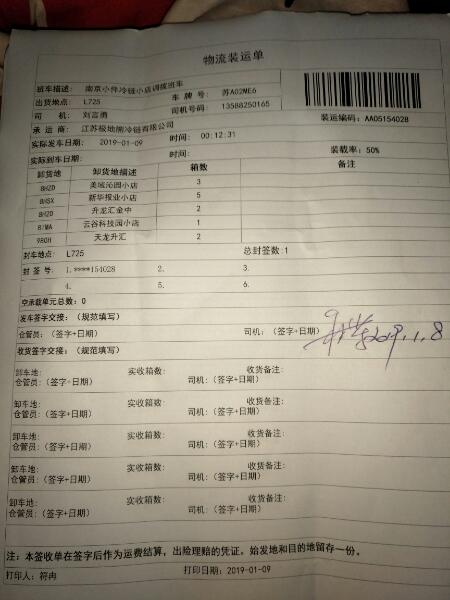 物流装运单
班车描述: 南京小件冷链小店调拨班车
出货地点: L725 车 牌 号: 苏A02ME6
司 机: 刘言勇 司机号码: 13588250165
承 运 商: 江苏极地熊冷链有限公司 装运编码: AA05154028
实际发车日期: 2019-01-09 时间: 00:12:31
实际到车日期: 时间: 装载率: 50%
卸货地 卸货地描述 箱数 备注
8HZD 美域沁园小店 3
8HSX 新华报业小店 5
8H2D 升龙汇金中 2
8/WA 云谷科技园小店 1
980H 天龙升汇 2
封车地点: L725 总封签数:1
封 签 号: 1.****154028 2. 3.
4. 5. 6.
空承载单元总数: 0
发车签字交接: (规范填写)
仓管员: (签字+日期) 司机: (签字+日期) 2019.1.8
收货签字交接: (规范填写)
卸车地: 实收箱数: 收货备注:
仓管员: (签字+日期) 司机: (签字+日期)
卸车地: 实收箱数: 收货备注:
仓管员: (签字+日期) 司机: (签字+日期)
卸车地: 实收箱数: 收货备注:
仓管员: (签字+日期) 司机: (签字+日期)
卸车地: 实收箱数: 收货备注:
仓管员: (签字+日期) 司机: (签字+日期)
卸车地: 实收箱数: 收货备注:
仓管员: (签字+日期) 司机: (签字+日期)
注: 本签收单在签字后作为运费结算, 出险理赔的凭证。始发地和目的地留存一份。
打印人: 符冉 打印日期: 2019-01-09